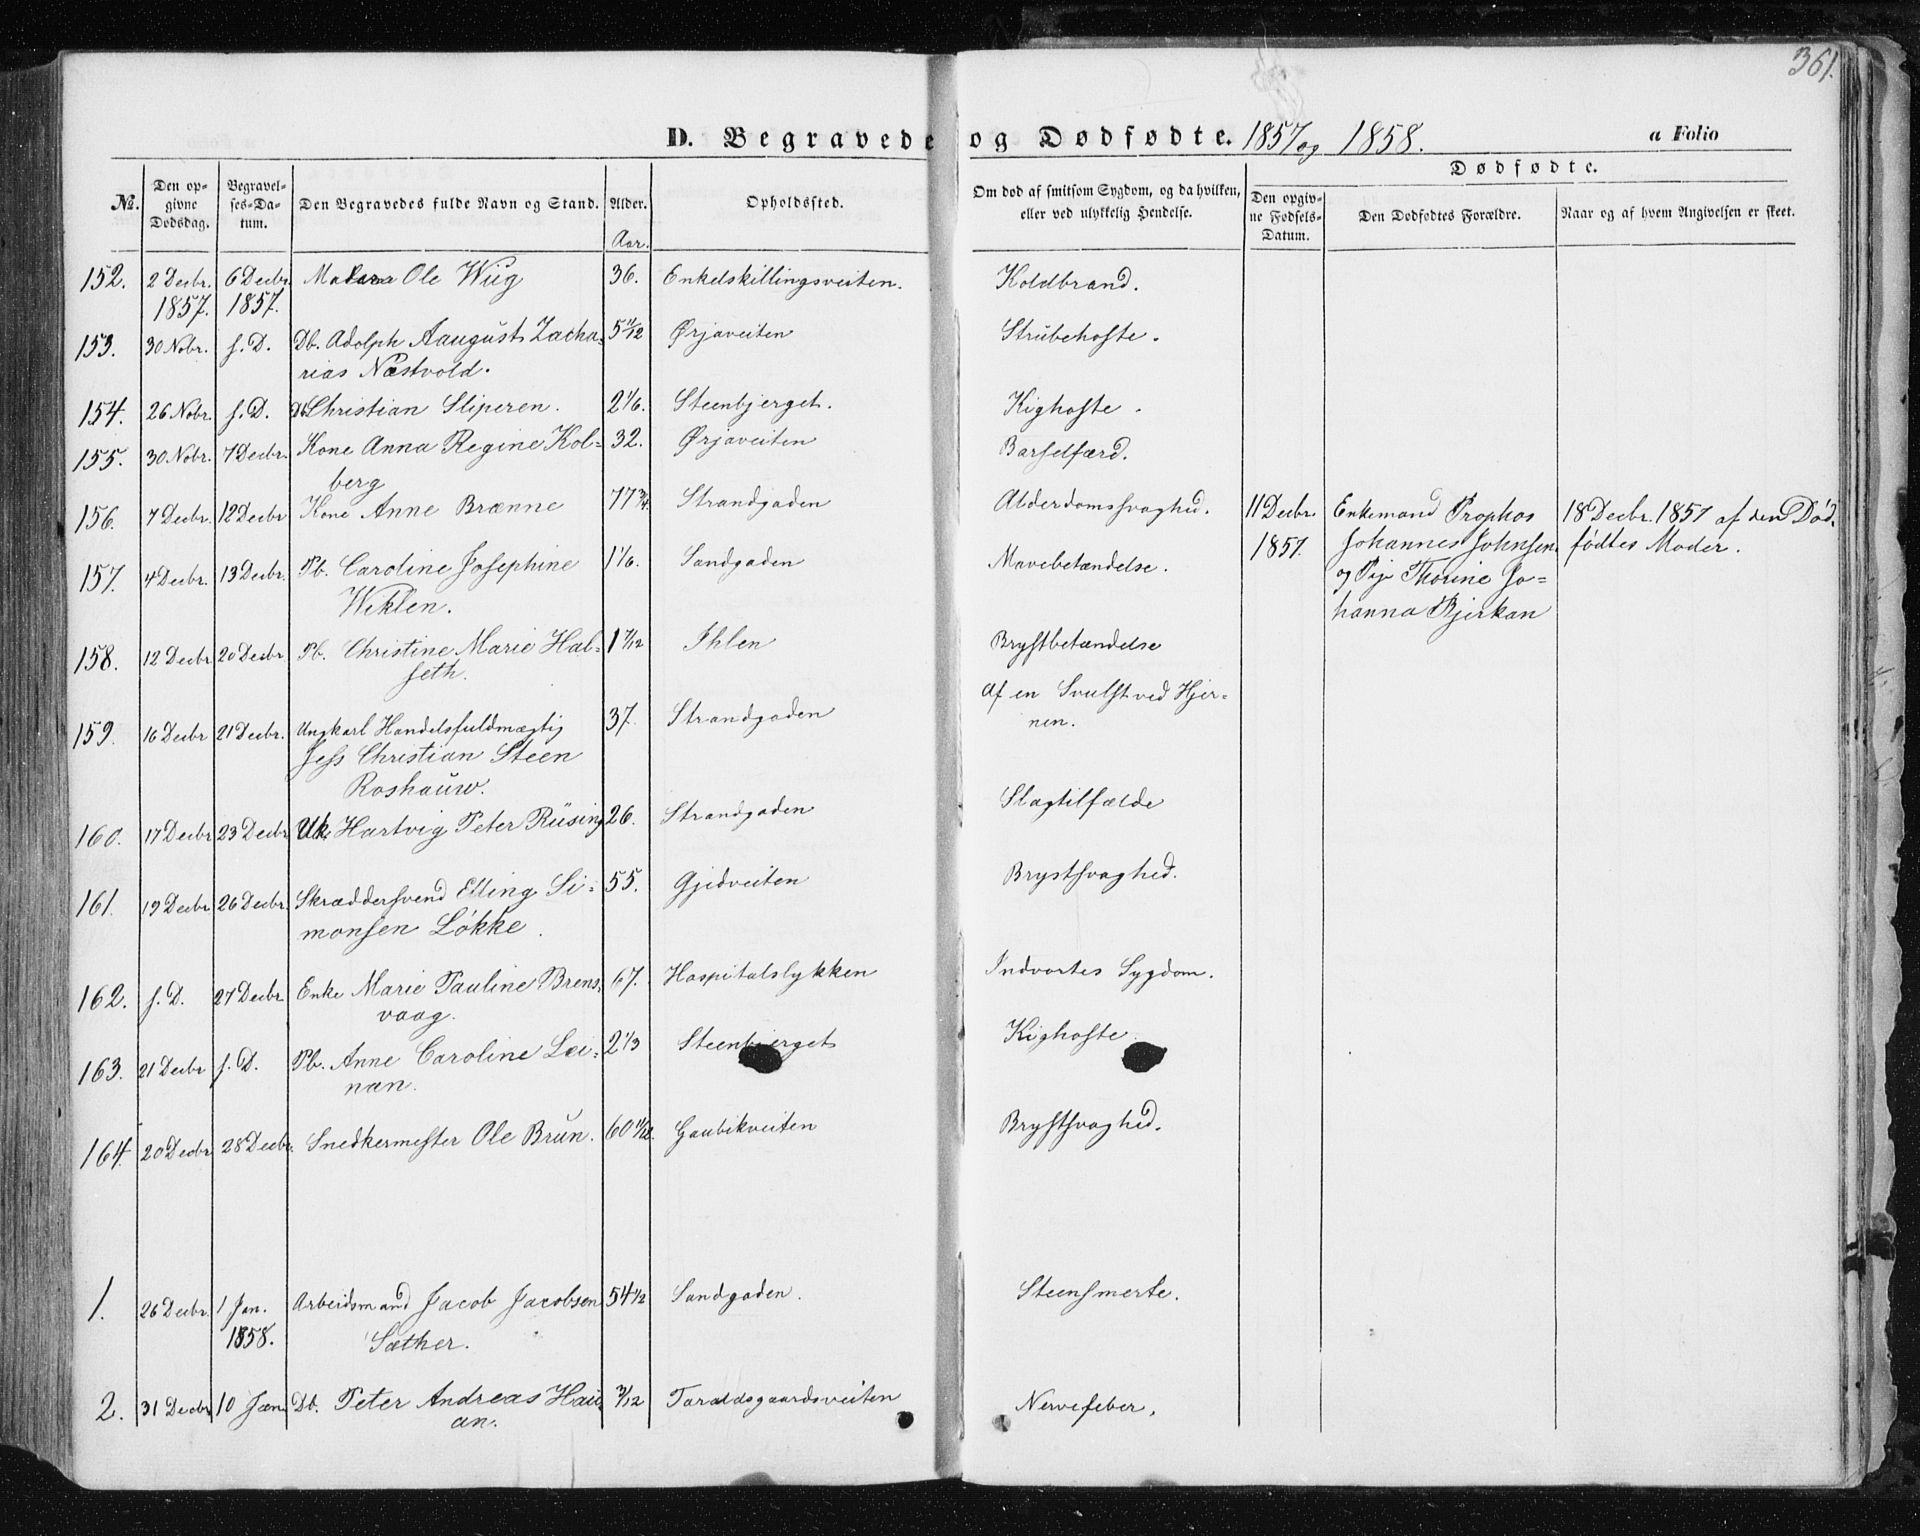 361.
D. Begravede og Dødfødte. 1857 og 1858. a Folio
Dødfødte.
No. Den opgivne Dødsdag. Begravelses-Datum. Den Begravedes fulde Navn og Stand. Alder. Opholdssted. Om død af smitsom Sygdom, og da hvilken, eller ved ulykkelig Hendelse. Den opgivne Fødsels-Datum. Den Dødfødtes Forældre. Naar og af hvem Angivelsen er skeet.
Aar.
152. 2 Decbr. 6 Decbr. Ole Wiig 36. Enkelskillingsveiten. Koldbrand.
1857. 1857.
153. 30 Nobr. s. D. Db. Adolph Aaugust Zacha- 5 11/12 Ørjaveiten Strubehoste.
rias Næstvold.
154. 26 Nobr. s. D. Db. Christian Sliperen. 2 1/6. Steenbjerget. Kighoste.
155. 30 Nobr. 7 Decbr. Kone Anna Regine Kol- 32. Ørjaveiten Barselfærd.
berg
156. 7 Decbr. 12 Decbr Kone Anne Brænne 77 3/4. Strandgaden Alderdomssvaghed. 11 Decbr. Enkemand Prophos 18 Decbr. 1857 af den Død-
1857. Johannes Johnsen fødtes Moder.
157. 4 Decbr. 13 Decbr. Pb. Caroline Josephine 1 1/6. Sandgaden Mavebetændelse. og Pige Thorine Jo-
Weklen. hanna Bjerkan
158. 12 Decbr 20 Decbr Pb. Christine Marie Hal- 1 7/12 Ihlen Brystbetændelse
seth.
159. 16 Decbr 21 Decbr. Ungkarl Handelsfuldmægtig 37. Strandgaden Af en Svulst ved Hjer-
Jess Christian Steen nen.
Roshauw.
160. 17 Decbr 23 Decbr Uk. Hartvig Peter Rüsing 26. Strandgaden Slagtilfælde
161. 19 Decbr 26 Decbr. Skræddersvend Elling Si- 55. Gjedveiten Brystsvaghed.
monsen Løkke.
162. s. D. 27 Decbr. Enke Marie Pauline Brens- 67. Hospitalslykken Indvortes Sygdom.
vaag.
163. 21 Decbr s. D. Pb. Anne Caroline Lei- 2 1/3 Steenbjerget Kighoste
næn.
164. 20 Decbr 28 Decbr. Snedkermester Ole Brun. 60 1/12. Gaubekveiten Brystsvaghed.
1. 26 Decbr. 1 Jan. Arbeidsmand Jacob Jacobsen 54 1/2 Sandgaden. Steensmerte.
1858. Sæther.
2. 31 Decbr 10 Jan. Db. Peter Andreas Hau- 3/12 Taraldsgaardsveiten Nervefeber.
an.